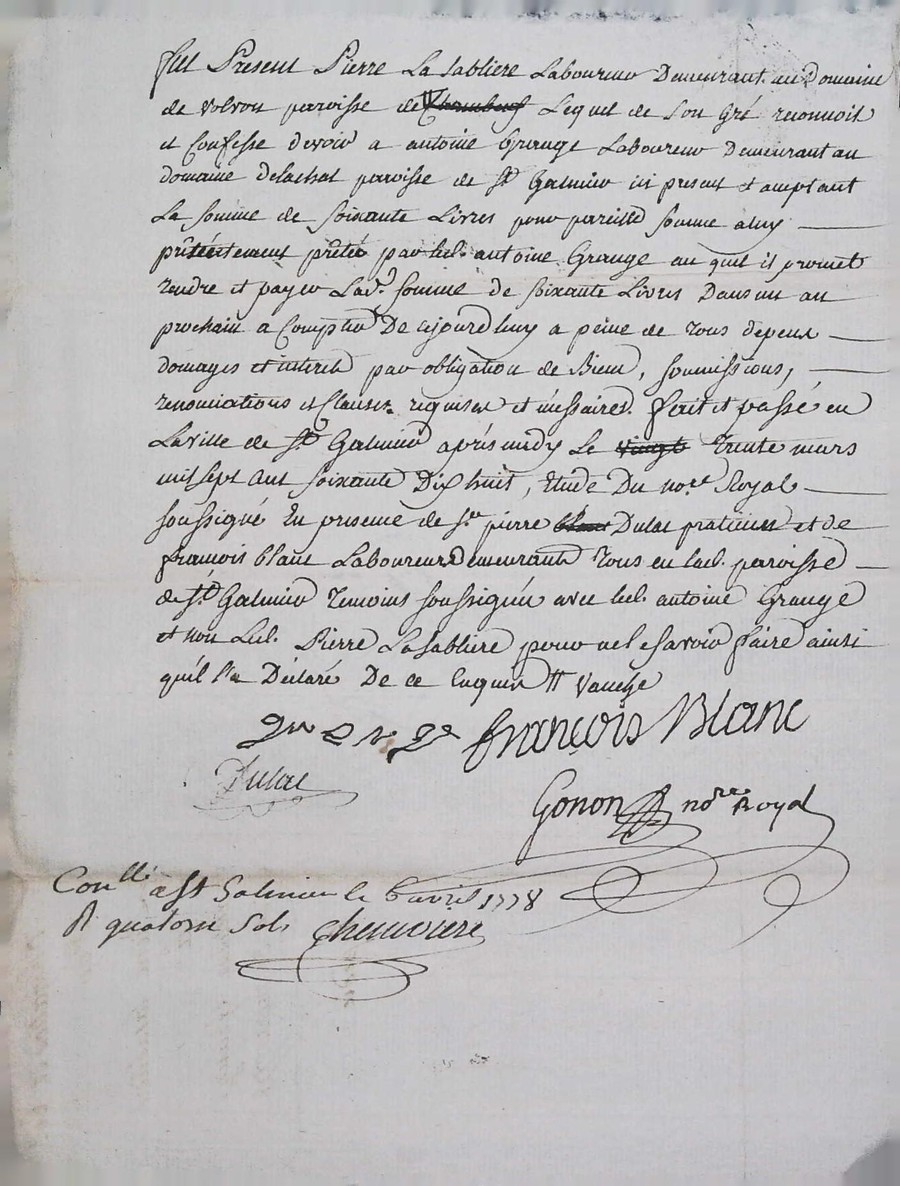 fut Present Pierre La sabliere Laboureur Demeurant au Domaine
de Volvon paroisse de Chambeuf Lequel de Son Gré reconnoit
et Confesse devoir a antoine Grange Laboureur Demeurant au
domaine delachat paroisse de St Galmier ici present et acceptant
La somme de soixante Livres pour pareille somme a luy
présentement prêtée par led. antoine Grange au quel il promet
rendre et payer Lad. somme de soixante Livres Dans un an
prochain a Compter De cejourdhuy a peine de tous depens
domages et interets par obligation de Biens, soumissions,
renonciations et Clauses requises et nessaires. fait et passé en
La ville de St Galmier après midy Le vingt trente mars
mil sept cent soixante Dix huit, Etude Du nore Royal
soussigné En presence de Sr pierre blanc Dulac praticien et de
francois blanc Laboureurs Demeurants tous en lad. paroisse
de St Galmier temoins soussignés avec led. antoine Grange
et non Led. Pierre La sabliere pour ne le savoir faire ainsi
qu'il l'a Déclaré De ce Enquis
françois Blanc
Dulac
Gonon nore Royal
Conllé a St Galmier le 6 avril 1778
R quatorze sols